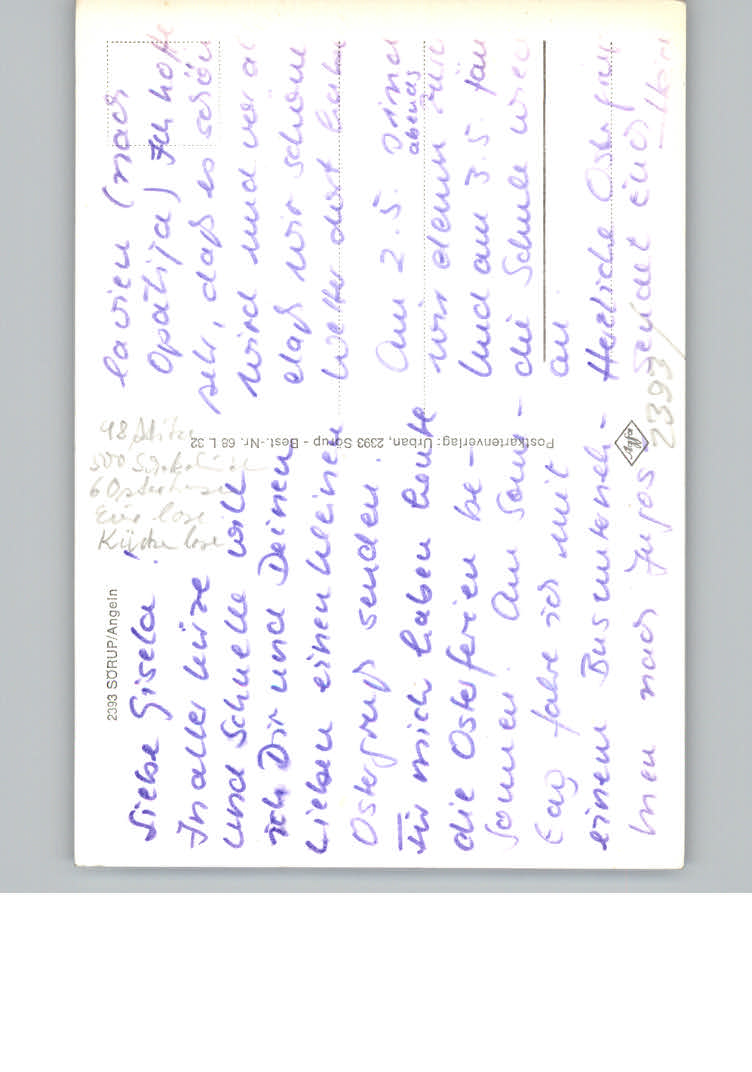 2393 SÖRUP/Angeln
Liebe Gisela!
In aller Kürze
und Schnelle will
ich Dir und Deinen
Lieben einen kleinen
Ostergruß senden.
Für mich haben heute
die Osterferien be-
gonnen. Am Sonn-
tag fahre ich mit
einem Busunterneh-
men nach Jugos-
lavien (nach
Opatija) Ich hoffe
sehr, daß es schön
wird und vor
daß wir schöne
Wetter dort haben
Am 2.5. sind
abends
wir denn
Und am 3.5.
die Schule
an.
Herzliche
sendet Euch
Postkartenverlag: Urban, 2393 Sörup - Best.-Nr. 68 L 32
Agfa
2393
98
500
6
Eier lose
Küken lose